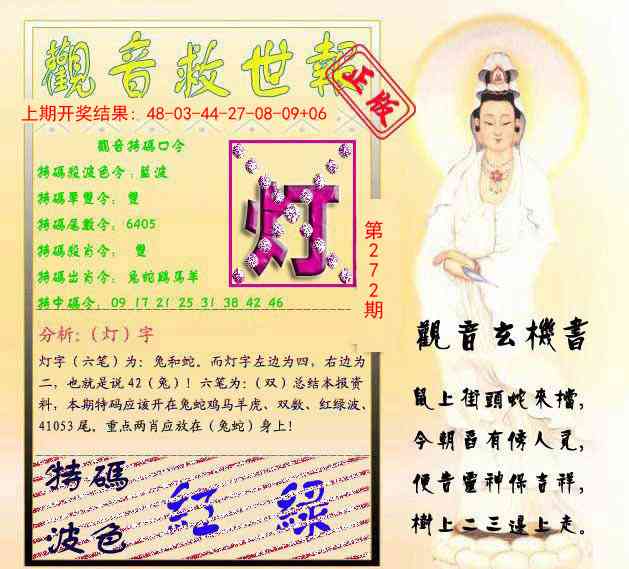 觀音救世報
正版
上期开奖结果：48-03-44-27-08-09+06
觀音特碼口令
特碼殺波色令：藍波
特碼單雙令： 雙
特碼尾數令：6405
特碼殺肖令： 雙
特碼出肖令：兔蛇鷄馬羊
特中碼令：09 17 21 25 31 38 42 46
灯
第272期
分析：（灯）字
灯字（六笔）为：兔和蛇。而灯字左边为四，右边为
二，也就是说42（兔）！六笔为：（双）总结本报资
料，本期特码应该开在兔蛇鸡马羊虎、双数、红绿波、
41053尾。重点两肖应放在（兔蛇）身上！
特碼
波色
紅 綠
觀音玄機書
鼠上街頭蛇來擋，
今朝酉有傍人見，
便告靈神保吉祥，
樹上二三邊上走。